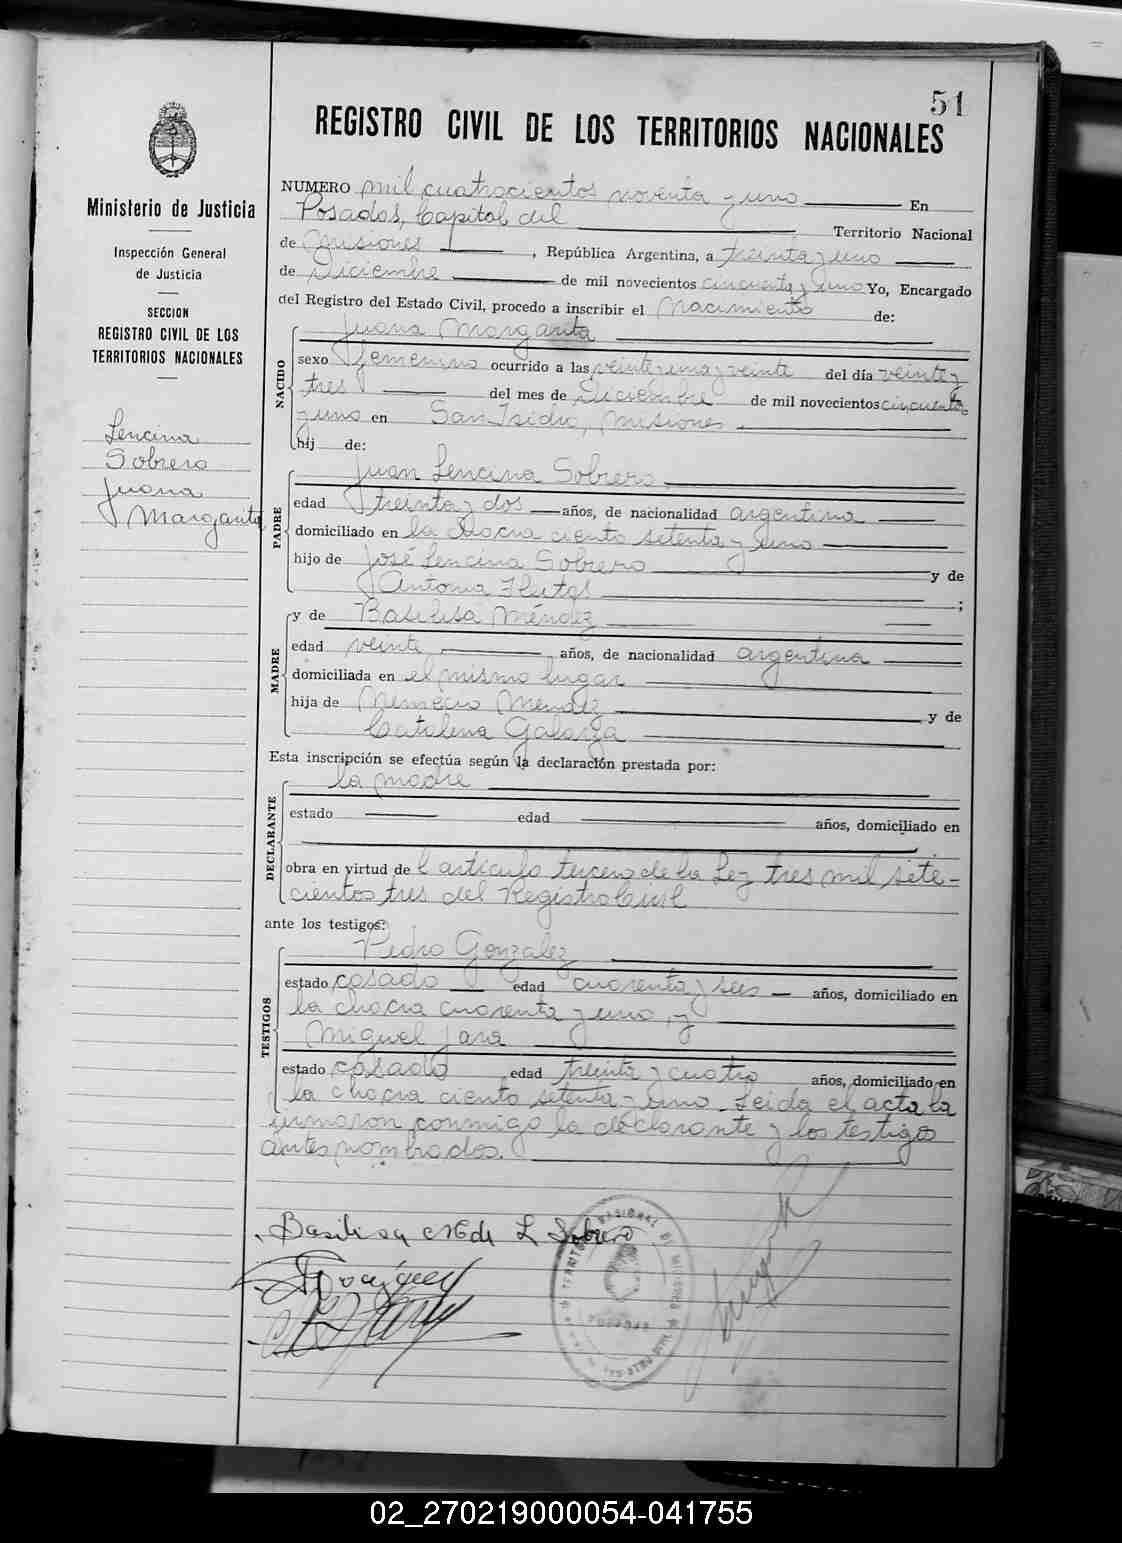 51
REGISTRO CIVIL DE LOS TERRITORIOS NACIONALES
Ministerio de Justicia
Inspección General
de Justicia
SECCION
REGISTRO CIVIL DE LOS
TERRITORIOS NACIONALES
Lencina
Sobrero
Juana
Margarita
NUMERO mil cuatrocientos noventa y uno En
Posadas, Capital del Territorio Nacional
de Misiones, República Argentina, a treinta y uno
de Diciembre de mil novecientos cincuenta y uno Yo, Encargado
del Registro del Estado Civil, procedo a inscribir el Nacimiento de:
NACIDO
Juana Margarita
sexo femenino ocurrido a las veinte del día veinte y
tres del mes de Diciembre de mil novecientos cincuenta
y uno en San Isidro, Misiones
hij de:
PADRE
Juan Lencina Sobrero
edad treinta y dos años, de nacionalidad argentina
domiciliado en la chacra ciento setenta y uno
hijo de José Lencina Sobrero y de
Antonia ;
MADRE
y de Basilisa Méndez
edad veinte años, de nacionalidad argentina
domiciliada en el mismo lugar
hija de Nemecio Méndez y de
Catalina Galarza
Esta inscripción se efectúa según la declaración prestada por:
DECLARANTE
la madre
estado edad años, domiciliado en
obra en virtud del artículo tercero de la Ley tres mil sete-
cientos tres del Registro Civil
ante los testigos:
TESTIGOS
Pedro Gonzalez
estado casado edad cuarenta y seis años, domiciliado en
la chacra cuarenta y uno, y
Miguel Jara
estado casado edad treinta y cuatro años, domiciliado en
la chacra ciento setenta y uno. Leída el acta la
firmaron conmigo la declarante y los testigos
antes nombrados.
Basilisa M de L Sobrero
02_270219000054-041755